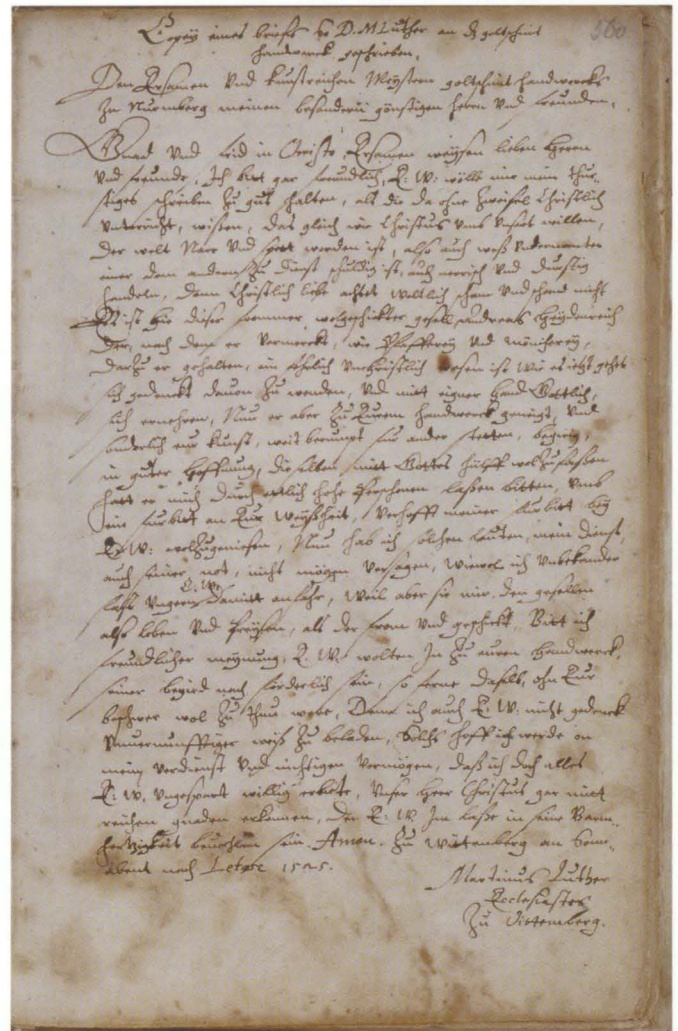 Copey eines briefs so D. M Luther an dz goltschmit
handwerck geschrieben.
Den Ersamen vnd kunstreichen Meystern goltschmit handwercks
zu Nurmberg meinen besondern günstigen herrn vnd freunden.
Gnad vnd frid in Christo, Ersamen weysen lieben herrn
vnd freunde, Ich bitt gar freundlich, E: W: wölle mir mein thur-
stiges schreiben zu gut halten, als die da ohne zweifel Christlich
vnterricht, wissen, das gleich wie Christus vmb vnsert willen,
der welt Narr vnd spott worden ist, also auch weß vnternander
einer dem andern zu dienst schuldig ist, auch nerrisch vnd durstig
handeln, denn Christlich liebe achtet weltlich scham vnd schand nicht
Es ist hie dieser frommer, wolgeschickter gesell, Andreas Heydenreich
der, nach dem er vermerckt, wie Pfafferey vnd möncherey,
darzu er gehalten, ein fehrlich vnchristlich wesen ist wie es ietzt gehet
sich gedenckt dauon zu wenden, vnd mitt eigner hand Gottlich,
sich ernehren, Nuu er aber zu Eurem handwerck geneigt, vnd
sonderlich eur kunst, weit berumpt fur ander stetten, begirig,
in guter hoffnung, dieselben mitt Gottes hülff wol zu fassen
hatt er mich durch ettlich hohe personen lassen bitten, vmb
ein furbitt an Eur Weyßheit, verhofft meiner furbitt bey
E: W: wol zu geniesen, Nuu hab ich solchen leuten, mein dienst,
auch seiner not, nicht mögen versagen, wiewol ich vnbekander
fast vngern E. W. damitt anlohr, weil aber sie mir, den gesellen
also loben vnd preysen, als der from vnd geschickt, Bitt ich
freundlicher meynung, E. W. wolten Jn zu euren handwerck,
seiner begird nach forderlich sein, so ferne dasselb, ohn Eur
beschwer wol zu thun were, Denn ich auch E: W: nicht gedenck
vnuernunfftiger weiß zu beladen, Solchs hoff ich werde on
mein verdienst vnd nichtigen vermögen, daß ich doch alles
E: W. vngespart willig erbiete, vnser herr Christus gar mitt
reichen gnaden erkennen, der E: W. Jm lasse in seine Barm-
hertzigkeit beuohlen sein. Amen. Zu Wittenberg an Sonn-
abent nach Letare 1525.
Martinus Luther
Ecclesiastes
zu Vittemberg.
560